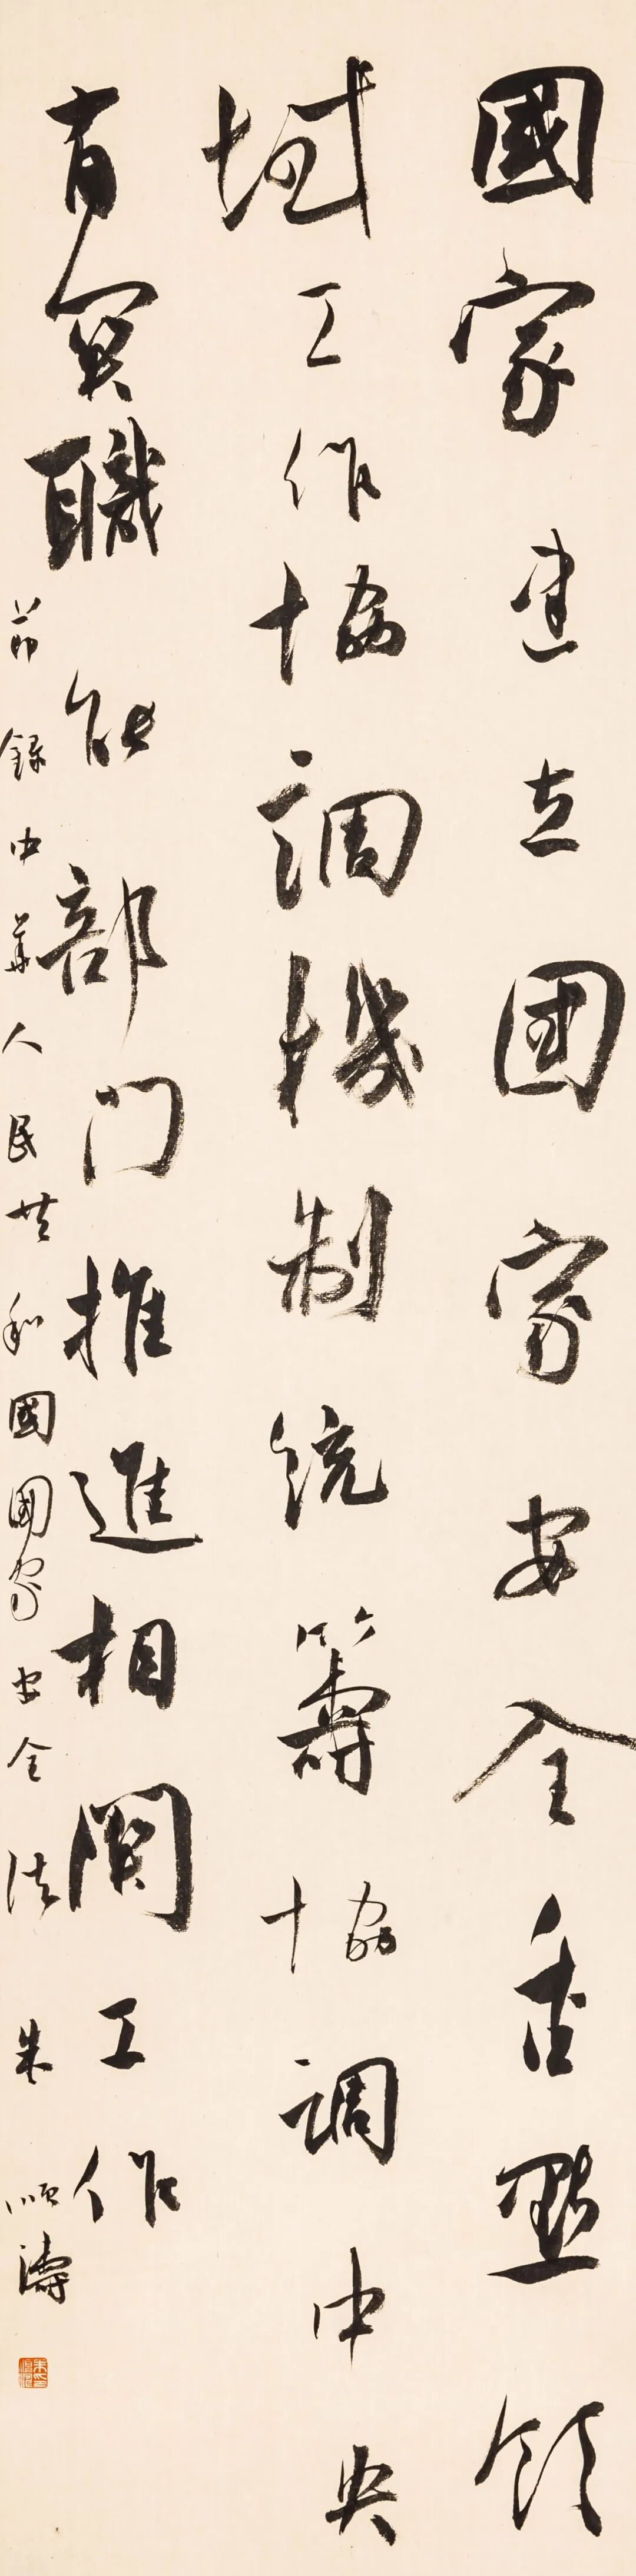 國家建立国家安全重點領
域工作協調機制統籌協調中央
有關職能部門推進相關工作
節録中華人民共和國國家安全法 朱順濤